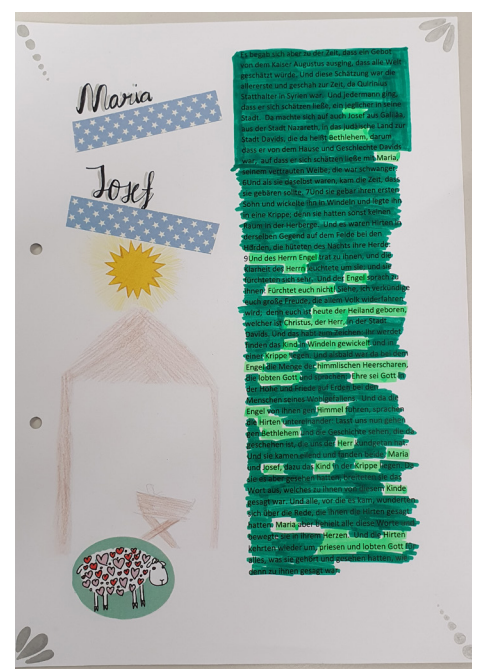 Maria
Josef
Es begab sich aber zu der Zeit, dass ein Gebot
von dem Kaiser Augustus ausging, dass alle Welt
geschätzt würde. Und diese Schätzung war die
allererste und geschah zur Zeit, da Quirinius
Statthalter in Syrien war. Und jedermann ging,
dass er sich schätzen ließe, ein jeglicher in seine
Stadt. Da machte sich auf auch Josef aus Galiläa,
aus der Stadt Nazareth, in das judäische Land zur
Stadt Davids, die da heißt Bethlehem, darum
dass er von dem Hause und Geschlechte Davids
war, auf dass er sich schätzen ließe mit Maria,
seinem vertrauten Weibe; die war schwanger.
6Und als sie daselbst waren, kam die Zeit, dass
sie gebären sollte. 7Und sie gebar ihren ersten
Sohn und wickelte ihn in Windeln und legte ihn
in eine Krippe; denn sie hatten sonst keinen
Raum in der Herberge. Und es waren Hirten in
derselben Gegend auf dem Felde bei den
Hürden, die hüteten des Nachts ihre Herde.
9Und des Herrn Engel trat zu ihnen, und die
Klarheit des Herrn leuchtete um sie; und sie
fürchteten sich sehr. Und der Engel sprach zu
ihnen: Fürchtet euch nicht! Siehe, ich verkündige
euch große Freude, die allem Volk widerfahren
wird; denn euch ist heute der Heiland geboren,
welcher ist Christus, der Herr, in der Stadt
Davids. Und das habt zum Zeichen: ihr werdet
finden das Kind in Windeln gewickelt und in
einer Krippe liegen. Und alsbald war da bei dem
Engel die Menge der himmlischen Heerscharen,
die lobten Gott und sprachen: Ehre sei Gott in
der Höhe und Friede auf Erden bei den
Menschen seines Wohlgefallens. Und da die
Engel von ihnen gen Himmel fuhren, sprachen
die Hirten untereinander: Lasst uns nun gehen
gen Bethlehem und die Geschichte sehen, die da
geschehen ist, die uns der Herr kundgetan hat.
Und sie kamen eilend und fanden beide, Maria
und Josef, dazu das Kind in der Krippe liegen. Da
sie es aber gesehen hatten, breiteten sie das
Wort aus, welches zu ihnen von diesem Kinde
gesagt war. Und alle, vor die es kam, wunderten
sich über die Rede, die ihnen die Hirten gesagt
hatten. Maria aber behielt alle diese Worte und
bewegte sie in ihrem Herzen. Und die Hirten
kehrten wieder um, priesen und lobten Gott für
alles, was sie gehört und gesehen hatten, wie
denn zu ihnen gesagt war.